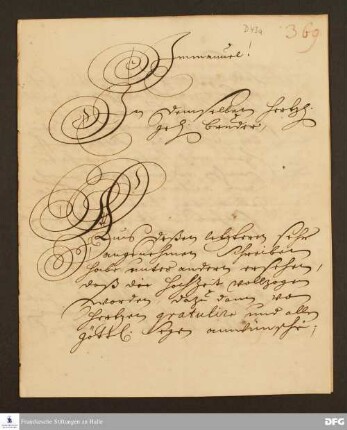 D43a 369
Immanuel!
In demselben hertzl.
gel. bruder,
Aus deßen letzteren sehr
angenehmen Schreiben
habe unter andern ersehen,
daß die Hochzeit vollzogen
worden dazu dann von
Hertzen gratulire und allen
göttl. Segen anwünsche;
Franckesche Stiftungen zu Halle
DFG